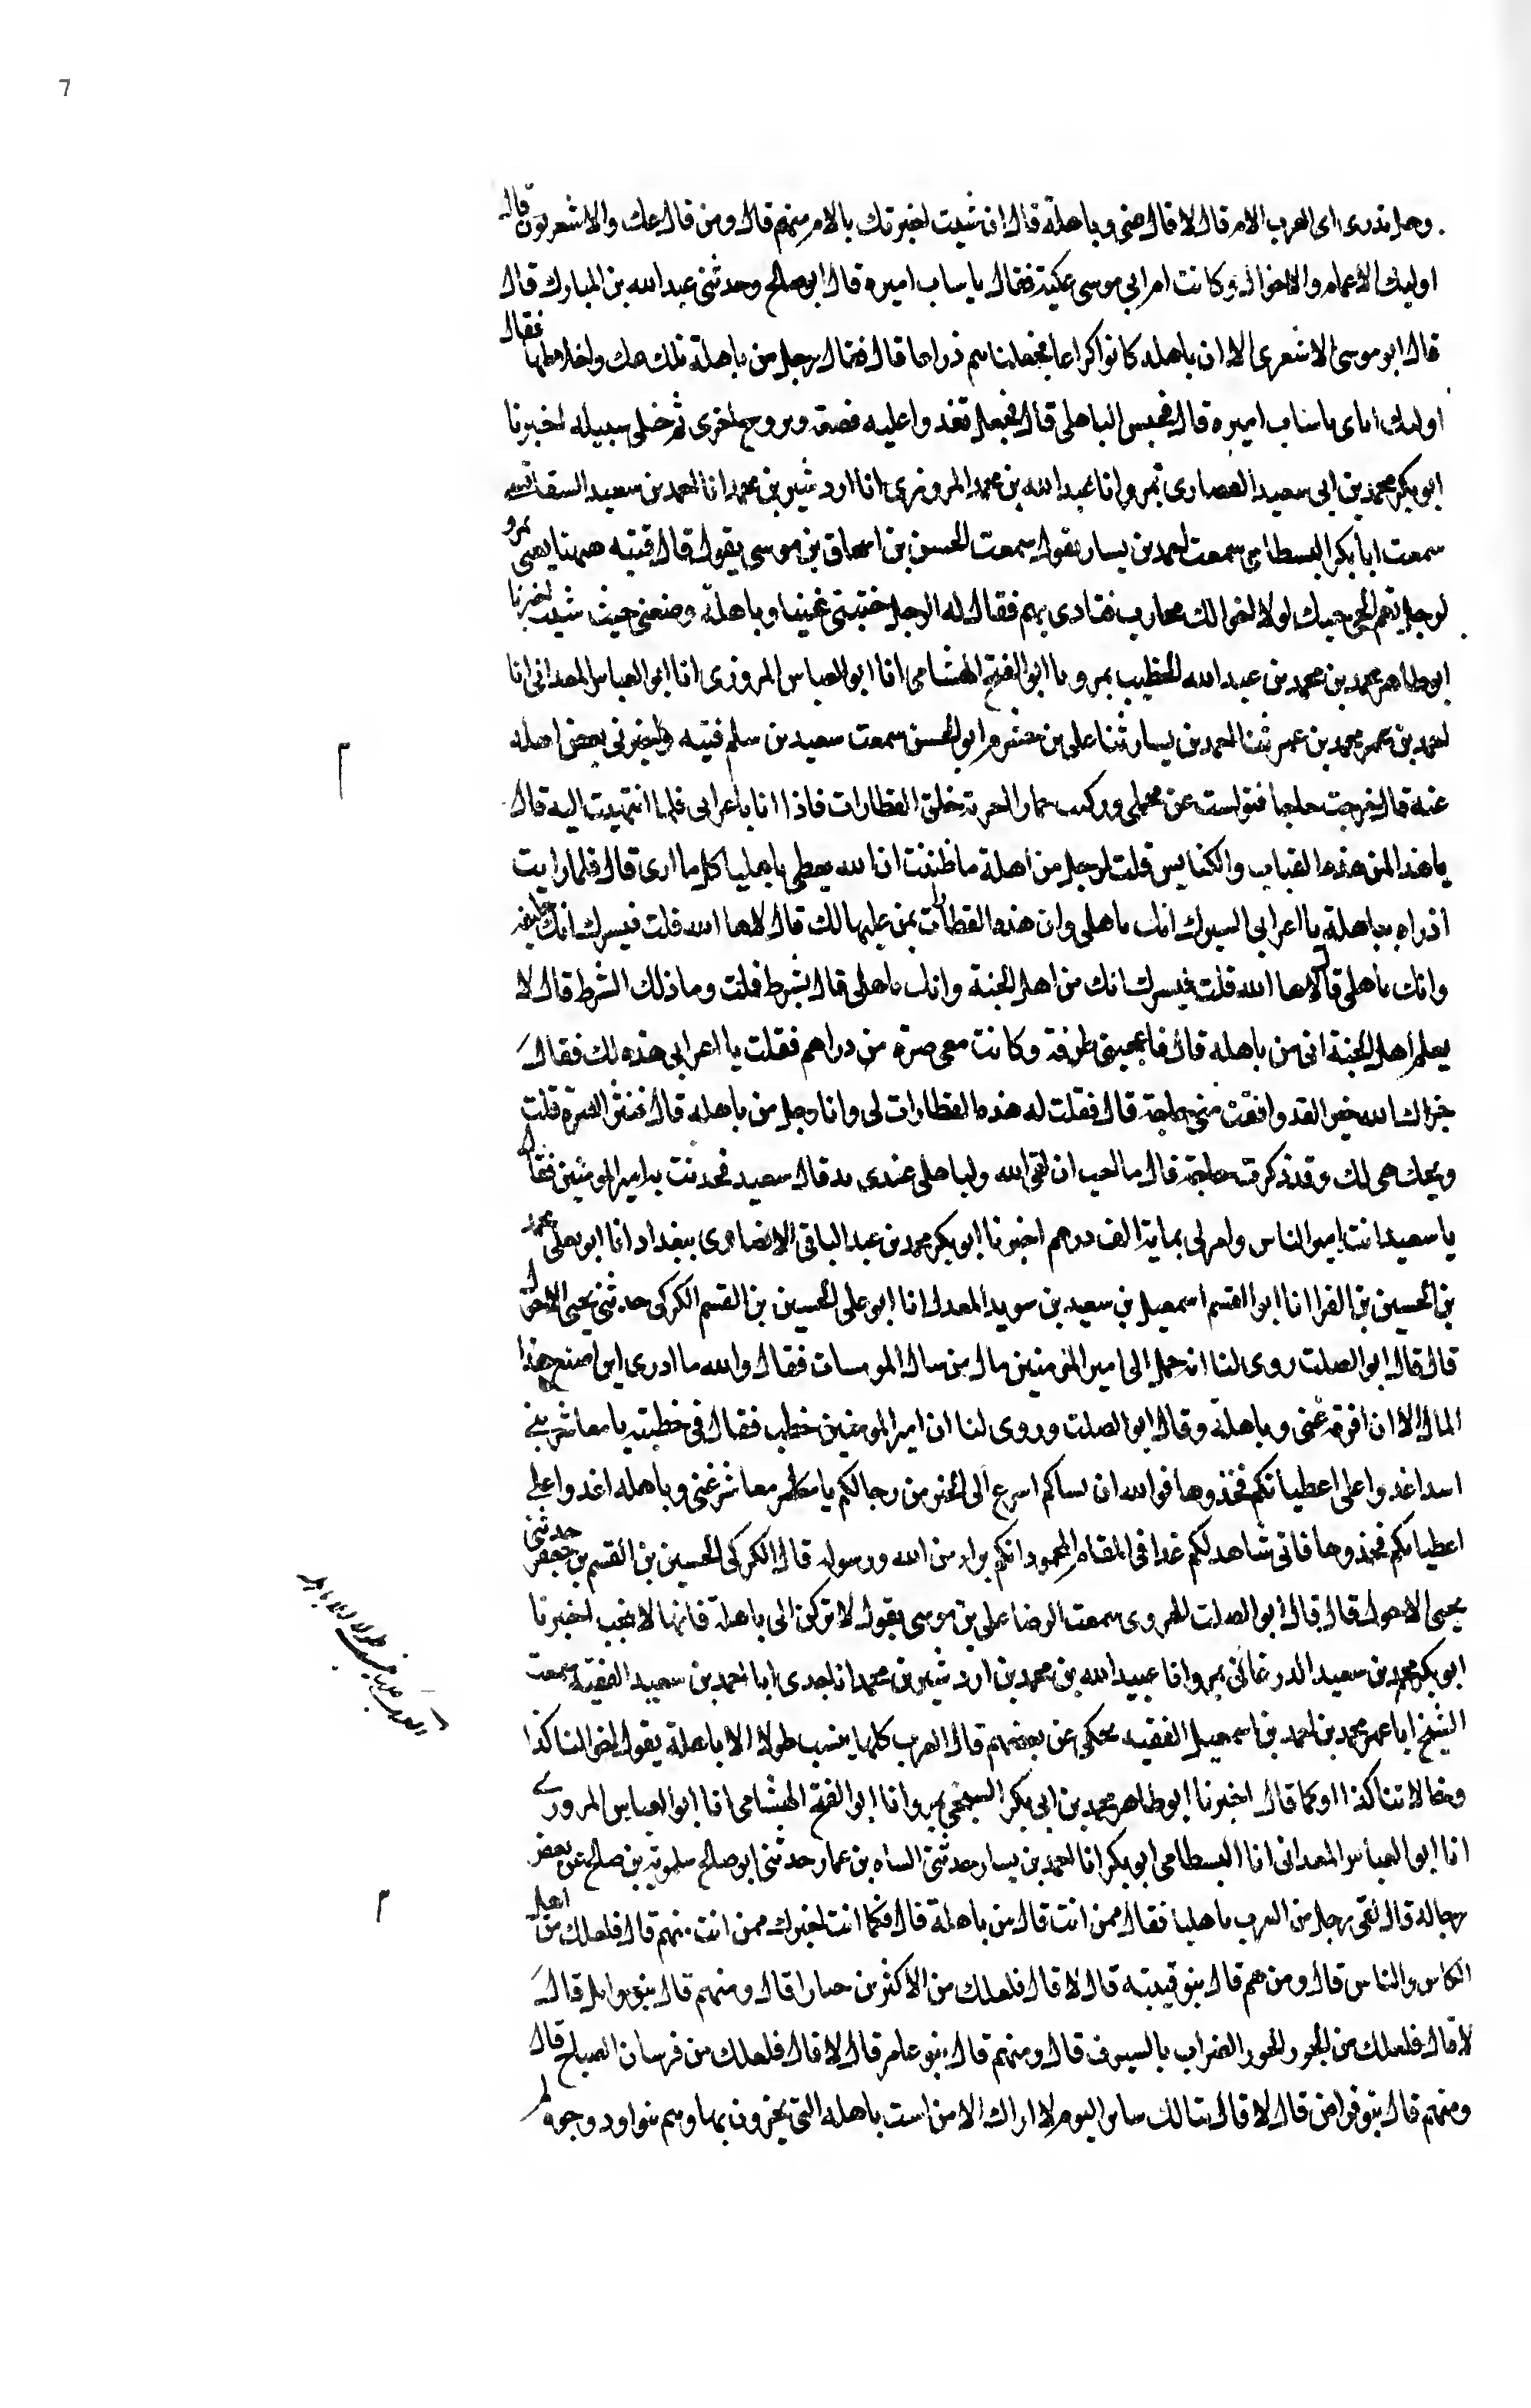 7
وهل تدرى اى العرب الام قال لا قال غنى وباهلة قال ان شيت اخبرتك بالام منهم قال ومن قال عك والاشعريون قال
اوليك الاعمام والاخوال وكانت ام ابي موسى عكية فقال يا ساب اميره قال ابو صالح وحدثنى عبد الله بن المبارك قال
قال ابو موسى الاشعرى الا ان باهله كانوا كراعا فجعلناهم ذراعا قال فقال رجل من باهلة تلك عك واخلاطها فقال
اوليك اباى يا ساب اميره قال فحبس الباهلى قال فجعل تغدوا عليه قصعة وتروح اخرى ثم خلى سبيله اخبرنا
ابو بكر محمد بن ابى سعيد الحصارى بمرو انا عبيد الله بن محمد المروزى انا اردشير بن محمد انا احمد بن سعيد
سمعت ابا بكر البسطامى سمعت احمد بن يسار يقول سمعت الحسن بن اسحاق بن موسى يقول قال قتيبه ههنا يعنى بمرو
لرجل نعم الحى حيك لولا اخوالك محارب فنادى بهم فقال له الرجل جنبنى غنيا وباهلة وضعنى حيث شيت اخبرنا
ابو طاهر محمد بن محمد بن عبد الله الخطيب بمرو انا ابو الفتح الهشامى انا ابو العباس المروزى انا ابو العباس المعدانى انا
احمد بن محمد بن عمر ثنا احمد بن يسار ثنا على بن خشرم ابو الحسن سمعت سعيد بن سلم قتيبه واخبرنى بعض اهله
عنه قال خرجت حاجا فنزلت عن محملى وركبت حمار الحرث خلف القطارات فاذا انا باعرابى فلما انتهيت اليه قال
يا هذا لمن هذه القباب والكنايس قلت لرجل من باهلة قال ما ظننت ان الله يعطى باهليا كل ما ارى قال فلما رايت
ازراه بباهلة يا اعرابى ايسرك انك باهلى وان هذه القطارات بمن عليها لك قال لاها الله قلت فيسرك انك خليفه
وانك باهلى قال لاها الله قلت فيسرك انك من اهل الجنة وانك باهلى قال بشرط قلت وما ذلك الشرط قال لا
يعلم اهل الجنة انى من باهله قال فاعجبنى ظرفه وكانت معى صرة من دراهم فقلت يا اعرابى هذه لك فقال
جزاك الله خيرا لقد وافقت منى حاجة قال فقلت له هذه القطارات لى وانا رجل من باهله قال فنثر الصرة قلت
ويحك هى لك وقد ذكرت حاجة قال ما احب ان القى الله ولباهلى عندى يد قال سعيد فحدثت به امير المومنين فقال
يا سعيد انت امير الناس وامر لى بماية الف درهم اخبرنا ابو بكر محمد بن عبد الباقى الانصارى ببغداد انا ابو يعلى محمد
بن الحسين بن الفرا انا ابو القسم اسمعيل بن سعيد بن سويد المعدل انا ابو على الحسين بن القسم الكوكبى حدثنى يحيى الاحول
قال قال ابو الصلت روى لنا انه حمل الى امير المومنين مال من مال المومسات فقال والله ما ادرى اين اصنع هذا
المال الا ان افرقه غنى وباهلة وقال ابو الصلت وروى لنا ان امير المومنين خطب فقال فى خطبته يا معاشر بنى
اسد اغدوا على اعطياتكم فخذوها فوالله ان نساكم اسرع الى الخير من رجالكم يا معاشر غنى وباهله اغدوا على
اعطياتكم فخذوها فانى شاهد لكم غدا فى المقام المحمود انكم براء من الله ورسوله قال الكوكبى الحسين بن القسم بن جعفر حدثنى
يحيى الاحول قال قال ابو الصلت الهروى سمعت الرضا على بن موسى يقول لا تركن الى باهلة فانها لا تنجب اخبرنا
ابو بكر محمد بن سعيد الدرغانى بمرو انا عبيد الله بن محمد بن اردشير بن محمد انا جدى ابا احمد بن سعيد الفقيه سمعت
الشيخ ابا عمر محمد بن احمد بن اسمعيل الفقيه يحكى عن بعضهم قال العرب كلها ينسب طولا الا باهلة يقول اخوالنا كذا
وخالاتنا كذا او كما قال اخبرنا ابو طاهر محمد بن ابى بكر السنجى بمرو انا ابو الفتح الهشامى انا ابو العباس المروزى
انا ابو العباس المعدانى انا البسطامى ابو بكر انا احمد بن يسار حدثنى الشاه بن عمار حدثنى ابو صالح سلمويه بن صالح عن بعض
رجاله قال لقى رجل من العرب باهليا فقال ممن انت قال من باهلة قال فكما انت اخبرك ممن انت منهم قال فلعلك من اهل
الكاس والناس قال ومن هم قال بنو قتيبه قال لا قال فلعلك من الاكثرين حصا قال ومنهم قال بنو وايل قال
لا قال فلعلك من البحور الضراب بالسيوف قال ومنهم قال بنو عامر قال لا قال فلعلك من فرسان الصباح قال
ومنهم قال بنو فراض قال لا قال تبا لك ساير اليوم لا اراك الا من است باهله التى يخرون بها وهم بنو اود وجوه